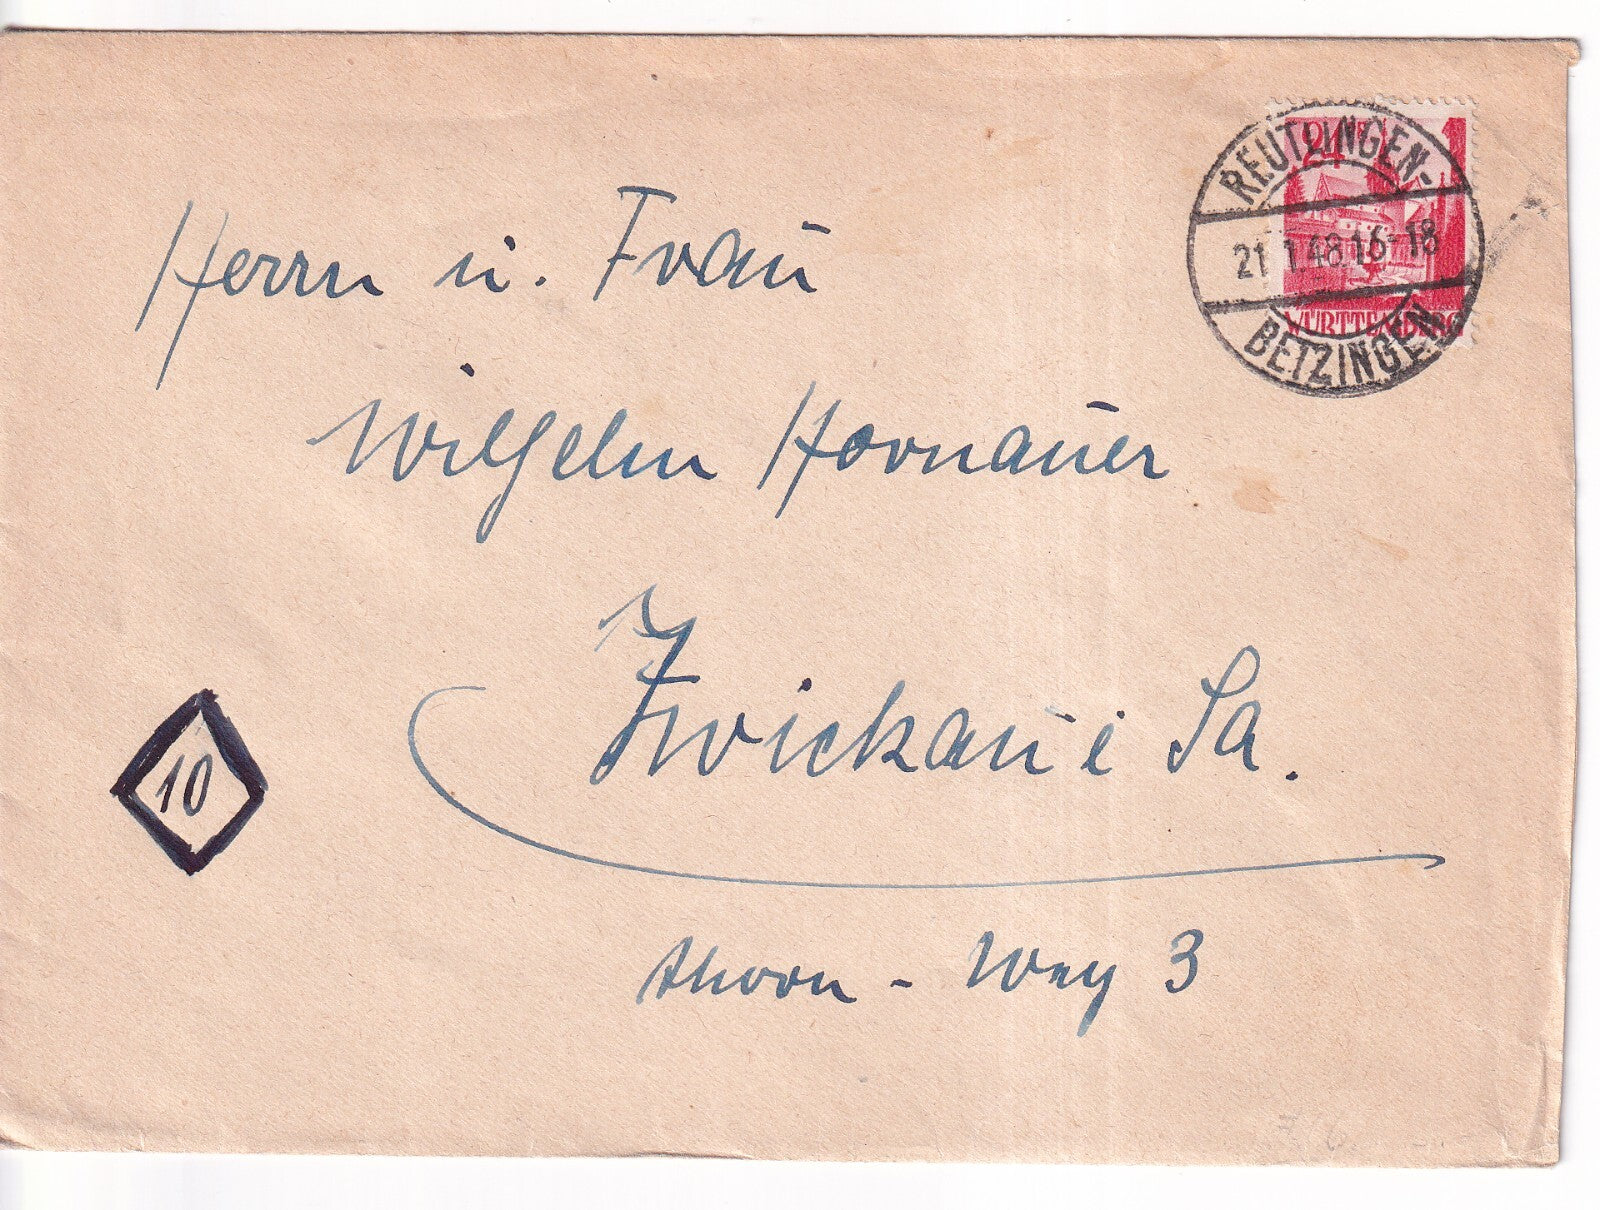 24
WÜRTTEMBERG
REUTLINGEN-
21.1.48.16-18
BETZINGEN
Herrn u. Frau
Wilhelm Hornauer
Zwickau i Sa.
10
Thorn - Weg 3